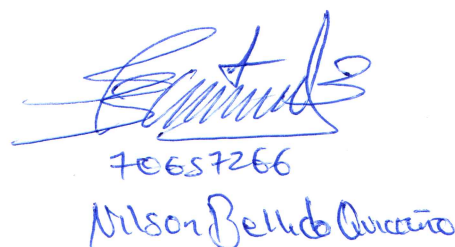 70657266
Nilson Bellido Quicaño